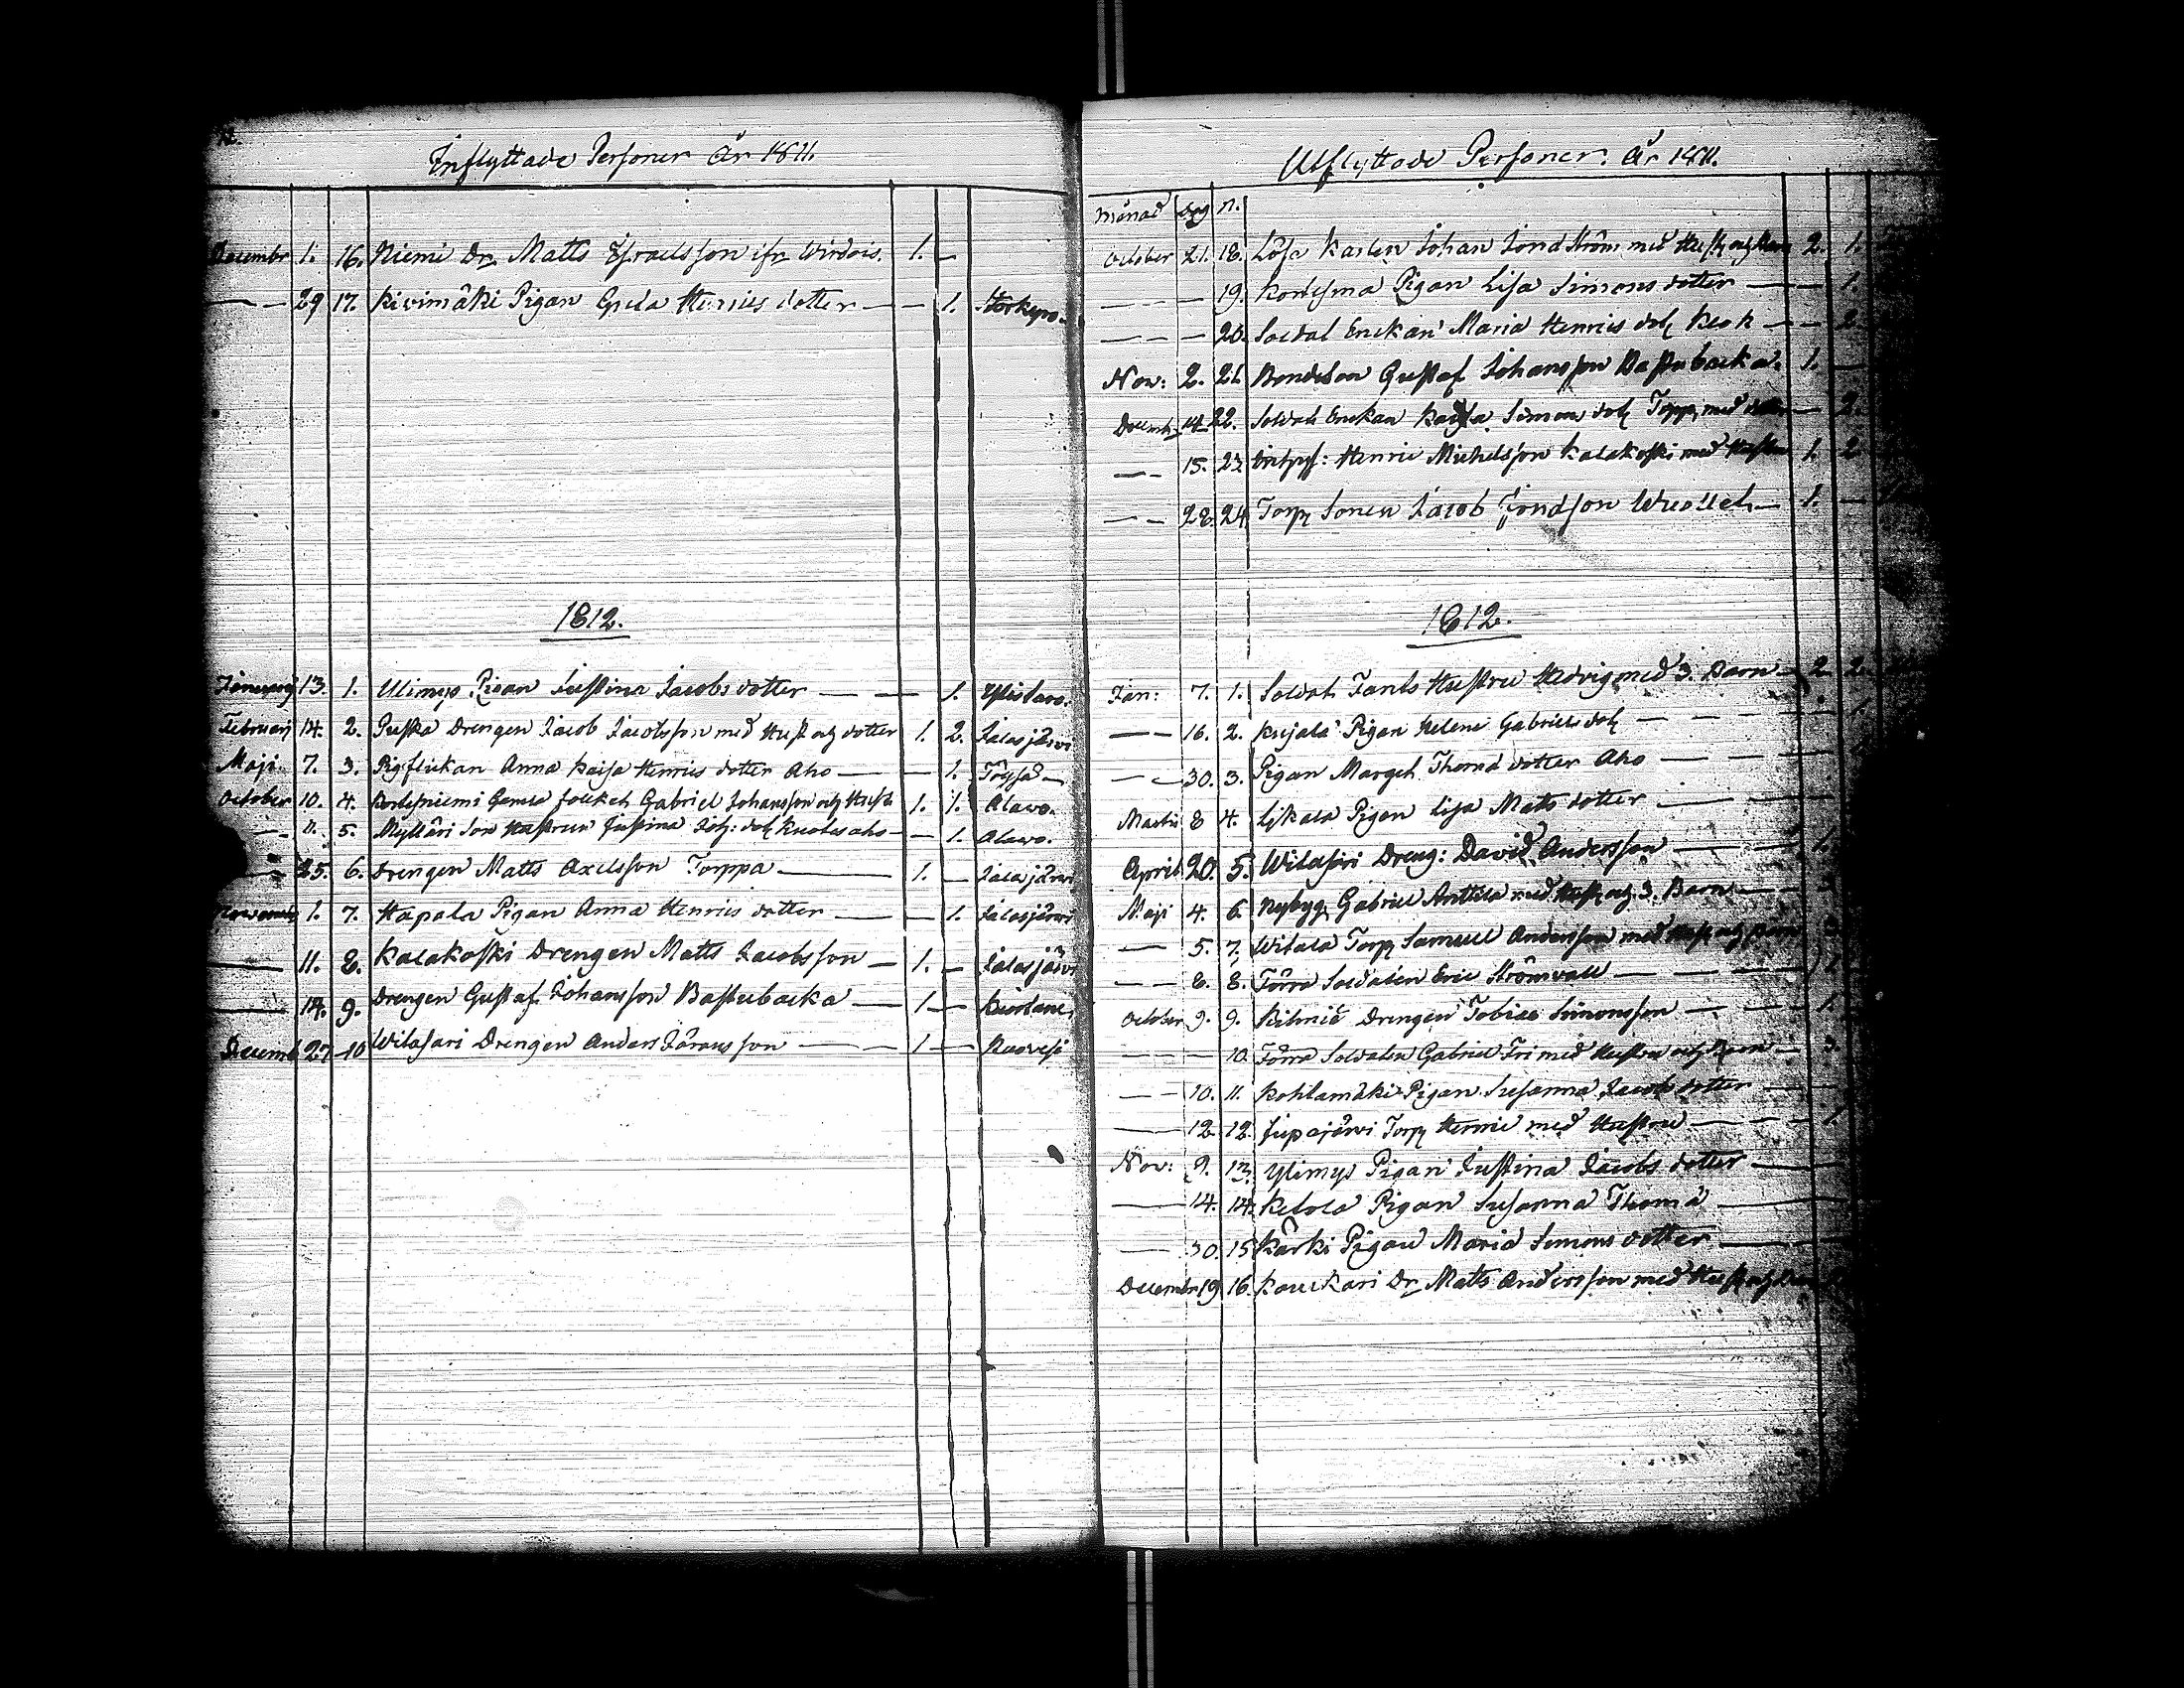 Inflyttade Personer år 1811.
Decembr 1. 16. Niemi Dr. Matts Israelsson ifr. Wirdois. 1. —
— 29 17. Kivimäki Pigan Greta Henrics dotter — 1. Storkyro.
1812.
Januarij 13. 1. Ulimys Pigan Justina Jacobs dotter — 1. Ylistaro.
Februarij 14. 2. Puska Drengen Jacob Jacobsson med Hust. och dotter 1. 2. Jalasjärvi
Maji 7. 3. Pigflickan Anna Kaisa Henrics dotter Aho — 1. Töysä
October 10. 4. Gamla folket Gabriel Johansson och Hust. 1. 1. Alavo.
— 11. 5. Mylläri Son Hustrun Justina Joh: dotr — 1. Alavo.
— 25. 6. Drengen Matts Axelsson Torppa — 1. — Jalasjärvi
Novemb 1. 7. Hapala Pigan Anna Henrics dotter — 1. Jalasjärvi
— 11. 8. Kalakoski Drengen Matts Jacobsson — 1. — Jalasjärvi
— 14. 9. Drengen Gustaf Johansson Bastubacka — 1 — Kuortane
Decemb 27 10 Witasari Drengen Anders — 1 — Ruovesi
Utflyttade Personer. år 1811.
månad dag n.
October 21. 18. Karlen Johan med Hust. och Barn 2. 1.
— 19. Kortesma Pigan Lisa Simons dotter — 1.
— 20. Soldat Enckan Maria Henrics dotr Klok — 2.
Nov: 2. 21. Bondeson Gustaf Johansson Bastubacka. 1. —
Decemb. 14 22. Soldats Enckan Kaisa Simons dotr Torpp. med dotter — 2.
— 15. 23. Henric Michelsson Kalakoski med Hustru 1. 2
— 28. 24. Torp. Sonen Jacob — 1. —
1812.
Jan: 7. 1. Soldat Fants Hustru Hedvig med 3. Barn — 2. 2.
— 16. 2. Kujala Pigan Helena Gabriels dotr — 1.
— 30. 3. Pigan Marget. Thoma dotter Aho —
Martii 8 4. Pigan Lisa Matts dotter —
April 20. 5. Witasari Dreng: David Andersson — 1.
Maji 4. 6. Nybyg. Gabriel Anttila med Hust. och 3. Barn — 3.
— 5. 7. Witala Torp. Samuel Andersson med Hust. och Barn 3.
— 8. 8. Förra Soldaten Eric Strömvall — 1.
October 9. 9. Drengen Tobias Simonsson — 1.
— 10. Förra Soldaten Gabriel Fri med Hustru och Barn — 3.
— 10. 11. Kohtamäki Pigan Susanna Jacobs dotter —
— 12. 12. Jupajärvi Torp. Henric med Hustru — 1.
Nov: 9. 13. Ylimys Pigan Justina Jacobs dotter —
— 14. 14. Ketola Pigan Susanna Thoma —
— 30. 15 Kärki Pigan Maria Simons dotter —
Decembr 19 16. Dr. Matts Andersson med Hust. och Barn